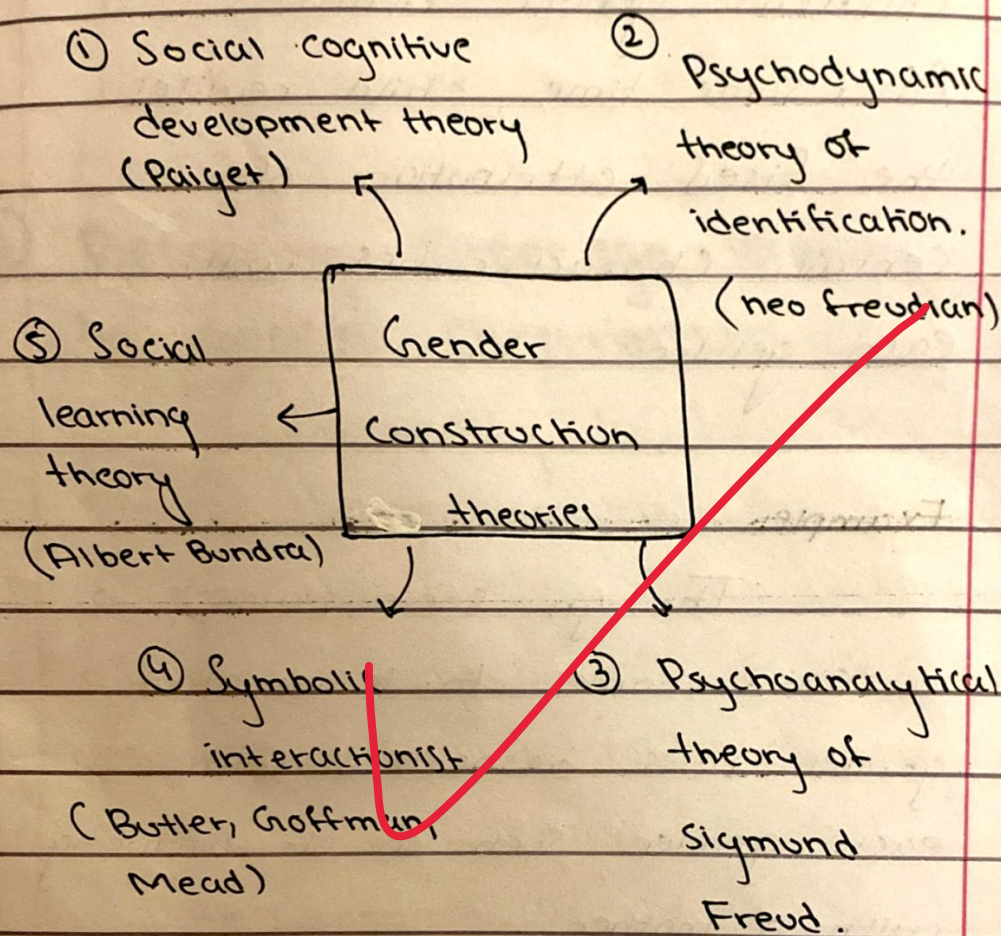 ① Social cognitive
development theory
(Paiget)
② Psychodynamic
theory of
identification.
(neo freudian)
Gender
Construction
theories
⑤ Social
learning
theory
(Albert Bundra)
④ Symbolic
interactionist
(Butler, Goffman,
Mead)
③ Psychoanalytical
theory of
Sigmund
Freud.